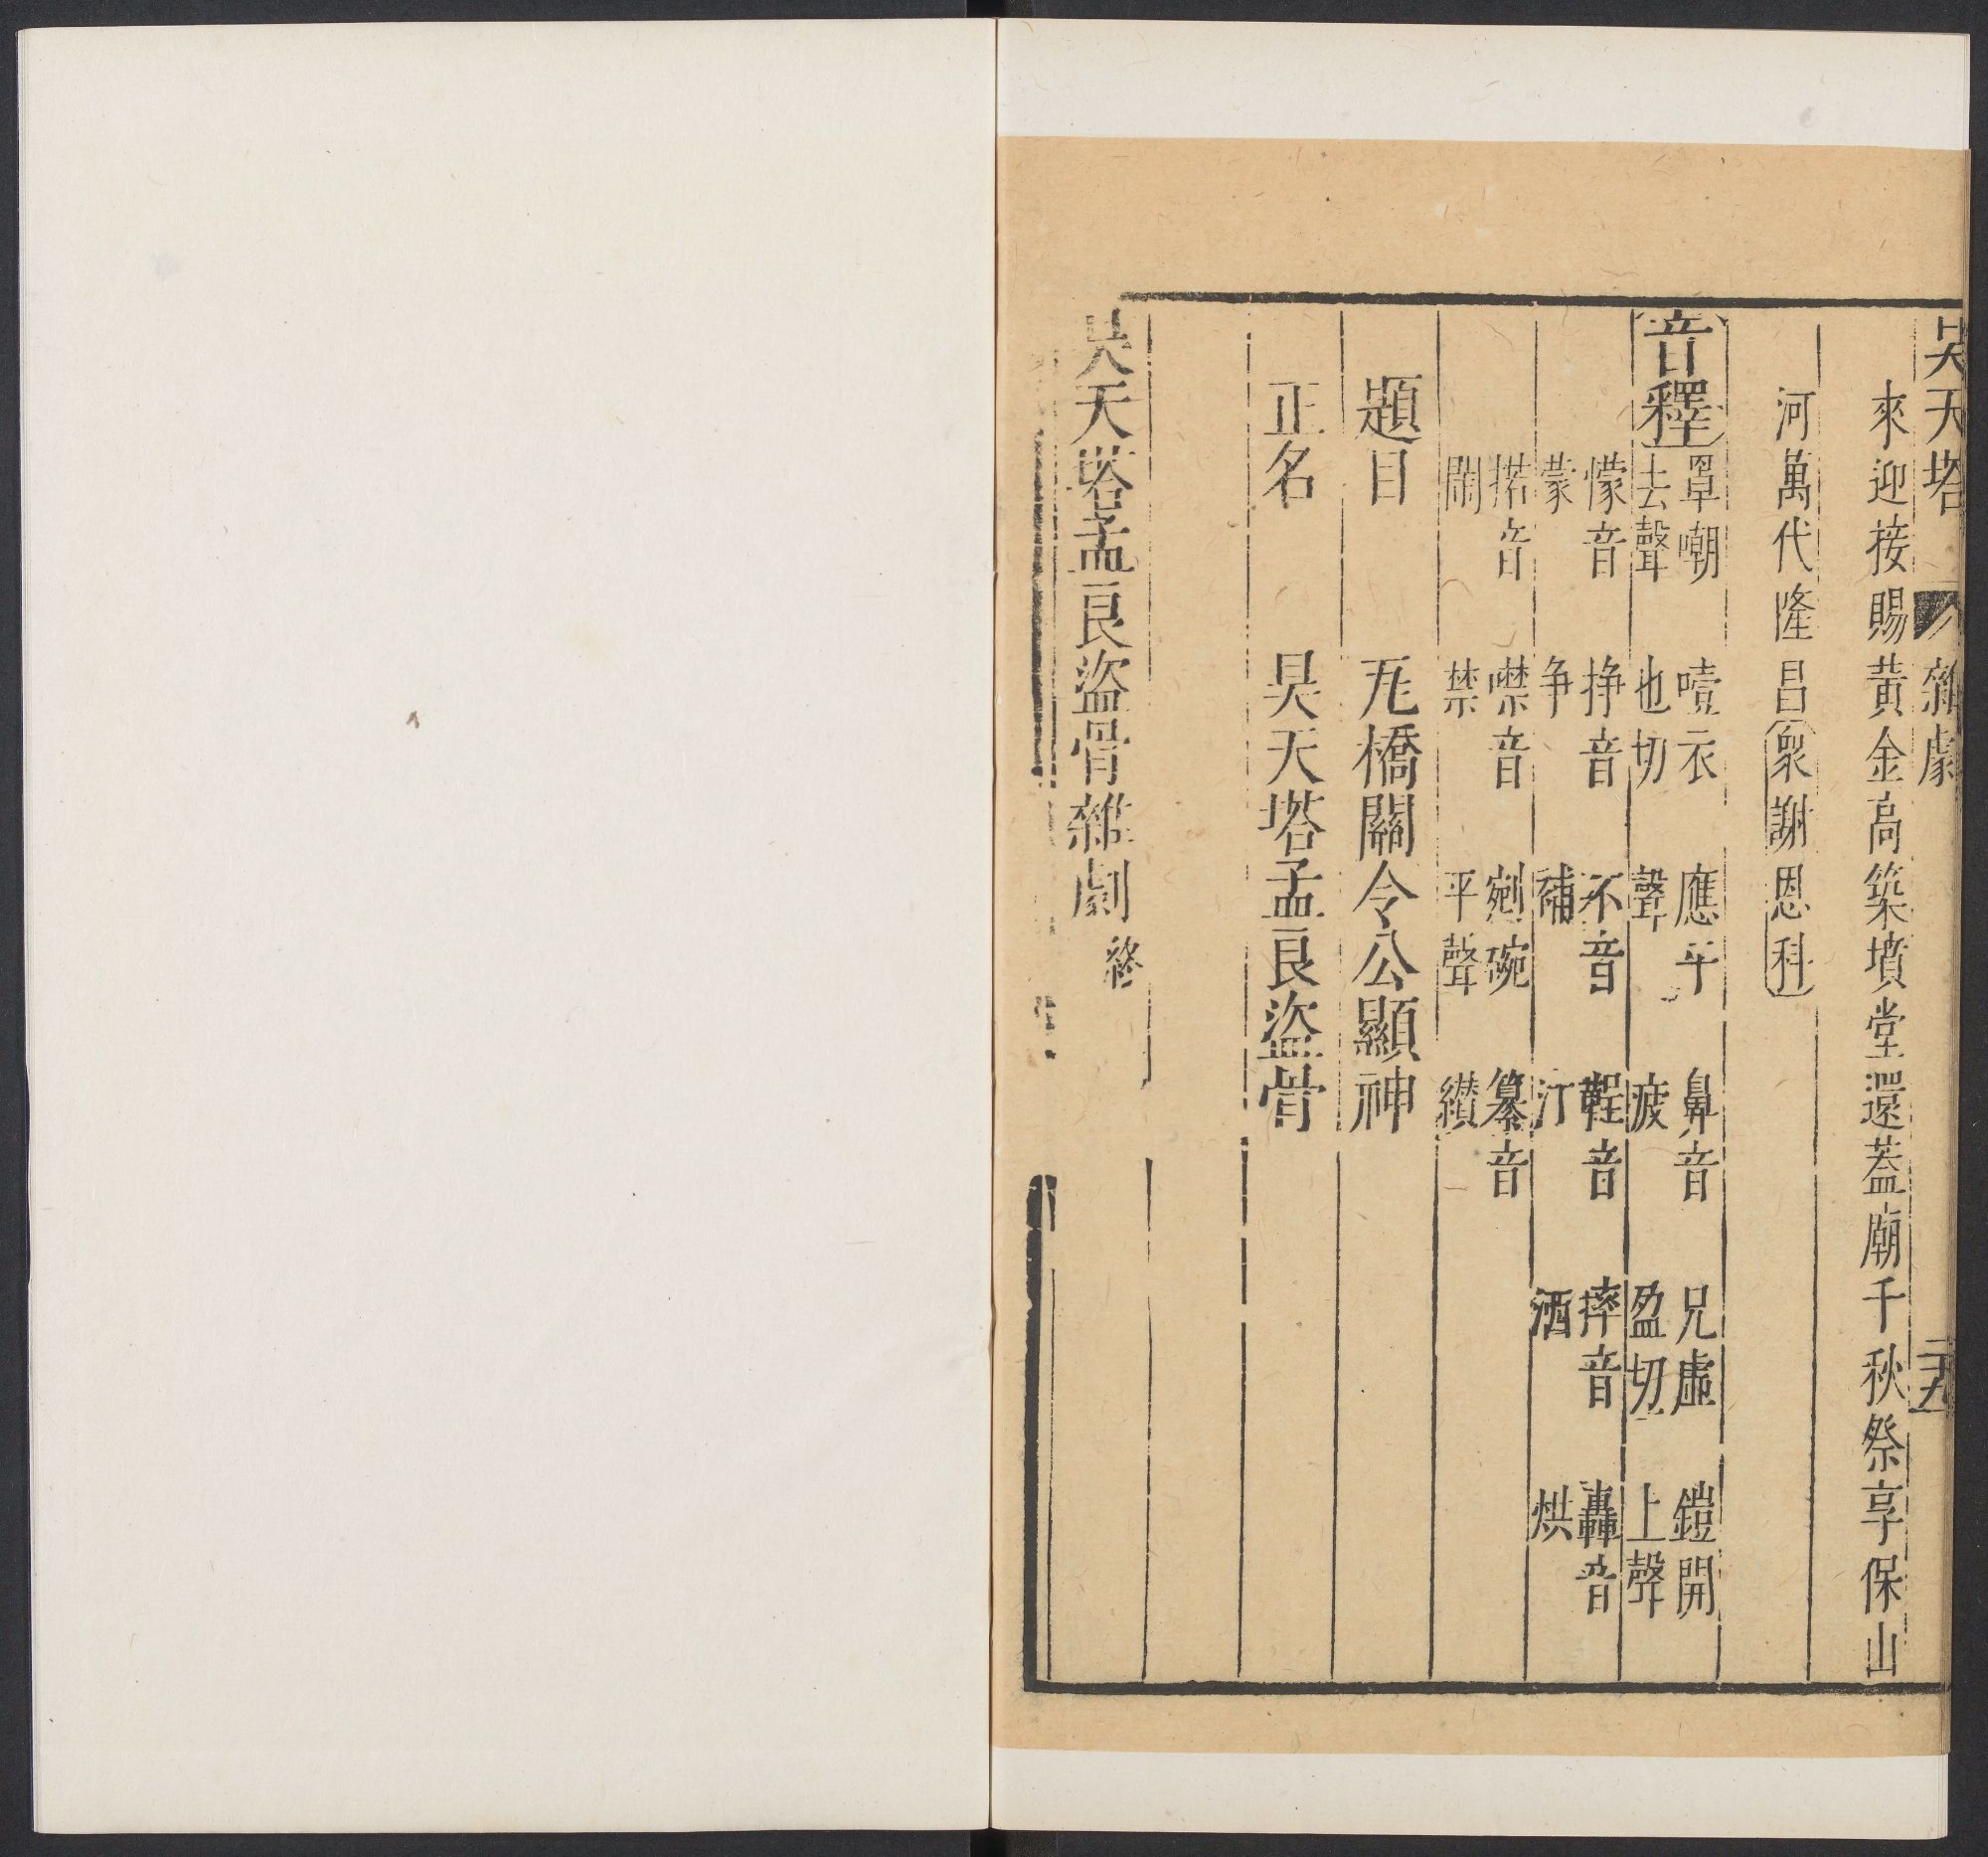 昊天塔 雜劇 二十九
來迎接賜黃金高築墳堂還蓋廟千秋祭享保山
河萬代隆昌衆謝恩科
音釋
罩嘲去聲 噎衣也切 應平聲 鼻音疲 兄虛盈切 鎧開上聲
懞音蒙 掙音争 不音補 鞓音汀 摔音洒 轟音烘
掿音閙 噤音禁 剜碗平聲 纂音纉
題目 瓦橋關令公顯神
正名 昊天塔孟良盜骨
昊天塔孟良盜骨雜劇終